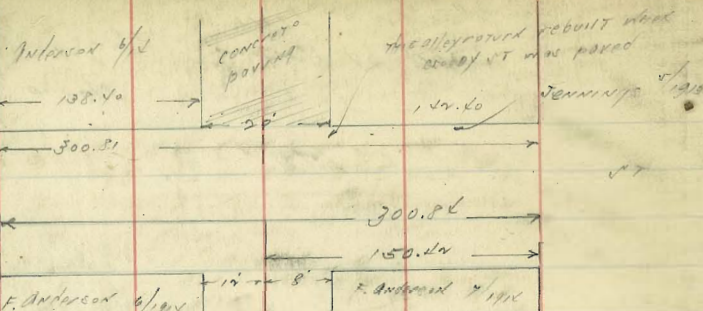 Anderson 6/14
CONCRETO
PAVING
The alley return rebuilt when
ST was paved
138.40
20'
142.40
JENNINGS 5/1912
300.81
ST
300.84
150.42
12' 8'
F. Anderson 6/1914
F. Anderson 7/1914